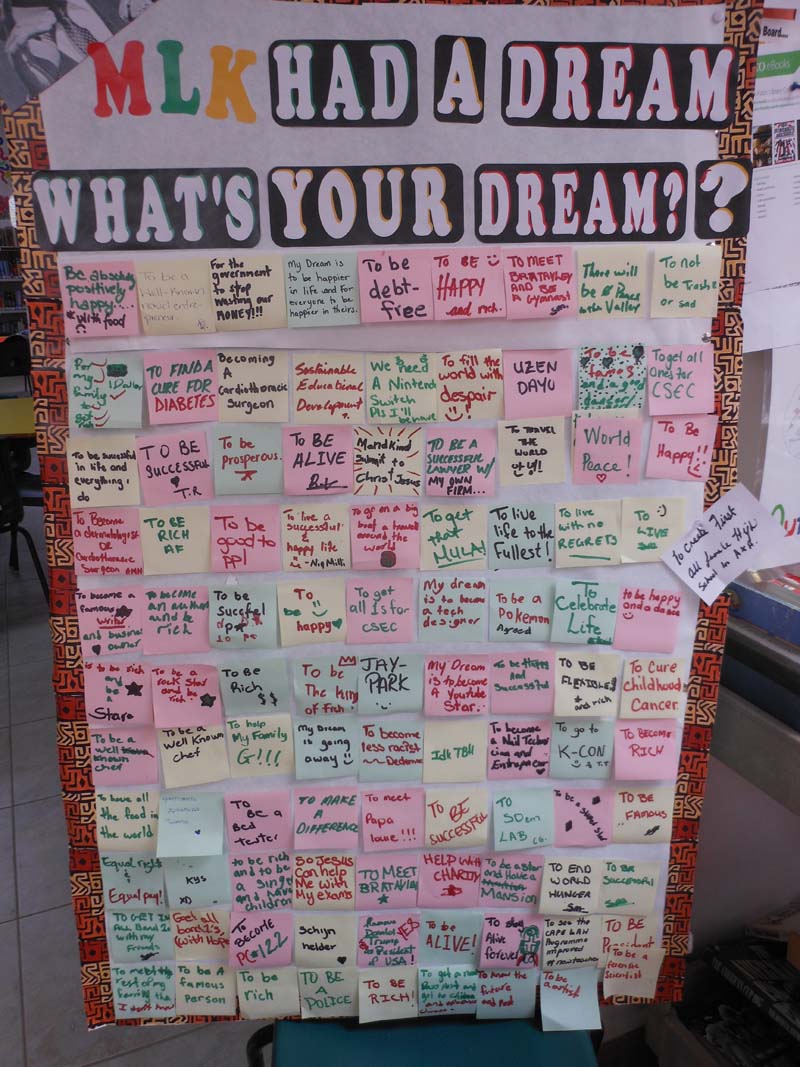 MLK HAD A DREAM
WHAT'S YOUR DREAM??
Board...
eBooks
Be absolutely
positively
happy....
with food
To be a
Well-Known
novel entre-
preneur.
For the
government
to stop
wasting our
MONEY!!!
My Dream is
to be happier
in life and for
everyone to be
happier in theirs.
To be
debt-
free
TO BE
HAPPY
and rich.
TO MEET
BRATAYLEY AND
BE A Gymnast
There will
be Peace
in the Valley
To not
be Trash
or sad
For
my
family
TO FIND A
CURE FOR
DIABETES
Becoming
A
Cardiothoracic
Surgeon
Sustainable
Educational
Development.
We need
A Nintendo
Switch
Pls I'll behave
To fill the
world with
despair
UZEN
DAYO
To be
and a good
dancer!
To get all
Ones for
CSEC
To be successful
in life and
everything i
do
TO BE
SUCCESSFUL
T.R
To be
prosperous.
TO BE
ALIVE
Mandkind
Submit to
Christ Jesus
TO BE A
SUCCESSFUL
LAWYER W/
MY OWN
FIRM...
TO TRAVEL
THE
WORLD
World
Peace!
To Be
Happy!!
To Become
a dermatologist OR
Cardiothoracic
Surgeon
TO BE
RICH
AF
To be
good to
ppl
To live a
successful &
happy life
To go on a big
boat & travel
around the
world
To get
that
MULA!
To live
life to the
Fullest!
To live
with no
REGRETS
To
LIVE
To Create First
all female High
School in
To become a
famous
writer
and business
owner
To become
an author
and be
rich
To be
To
be
happy
To get
all 1s for
CSEC
My dream
is to become
a tech
designer
To be a
Pokemon
To
Celebrate
Life
to be happy
and a dancer
is to be rich
and
be a
Star
To be a
rock star
and be
rich
TO BE
RICH
$$
To be
The King
of fish!
JAY-
PARK
My Dream
is to become
A Youtube
Star.
To be Happy
And
Successful
TO BE
FLEXIBLE
and rich
To Cure
childhood
Cancer.
To be a
well known
chef
To be a
Well Known
chef
To help
My Family
G!!!
My Dream
is going
away
To become
less racist
Idk TBH
To become
a Nail Techni
cian and
Entreprenuer
To go to
K-CON
To BECOME
RICH
To have all
the food in
the world
To
BE a
Bed
Tester
TO MAKE
A
DIFFERENCE
To meet
Papa
lowe!!!
TO BE
SUCCESSFUL
TO
SDEM
LAB co.
To be a
Star
TO BE
FAMOUS
Equal rights
&
Equal pay!
KYS
XD
to be rich
and to be
a singer
and have
children
So Jesus
can help
Me with
My exams
TO MEET
BRATAYLEY
HELP WITH
CHARITY
To be a star
and Have a
MANSION
TO END
WORLD
HUNGER
TO BE
SUCCESSFUL
TO GET IN
ALL Band 1s
with my
Friends
Get all
band 1's
(with Hope)
To
BECOME
PC#122
Schijn
helder
Remove
Donald
Trump
as President
of USA!
YES
To be
ALIVE!
To stay
Alive
forever
To see the
CAPE LAW
Programme
improved
TO BE
President
To be a
forensic
Scientist
To meet the
rest of my
family tha
I don't know
To be A
famous
Person
To be
rich
TO BE
A
POLICE
TO
BE RICH!
To know the
future
and Past
To be
artist